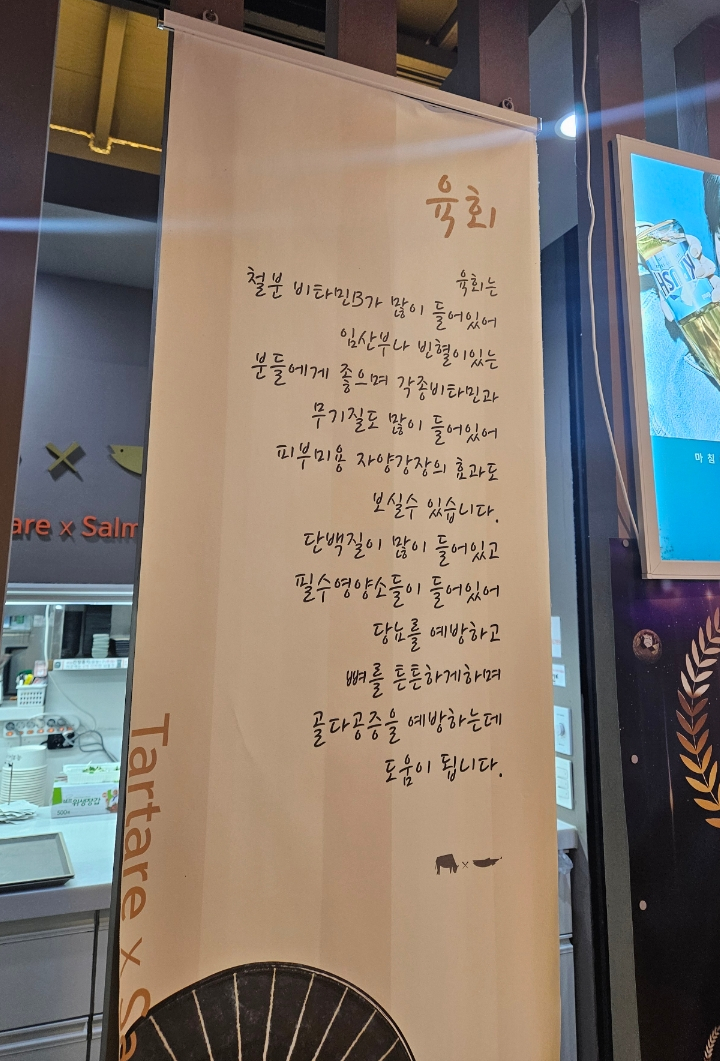 육회
육회는
철분 비타민B가 많이 들어있어
임산부나 빈혈이있는
분들에게 좋으며 각종비타민과
무기질도 많이 들어있어
피부미용 자양강장의 효과도
보실수 있습니다.
단백질이 많이 들어있고
필수영양소들이 들어있어
당뇨를 예방하고
뼈를 튼튼하게하며
골다공증을 예방하는데
도움이 됩니다.
Tartare x Sa
are x Salm
마침
위생장갑